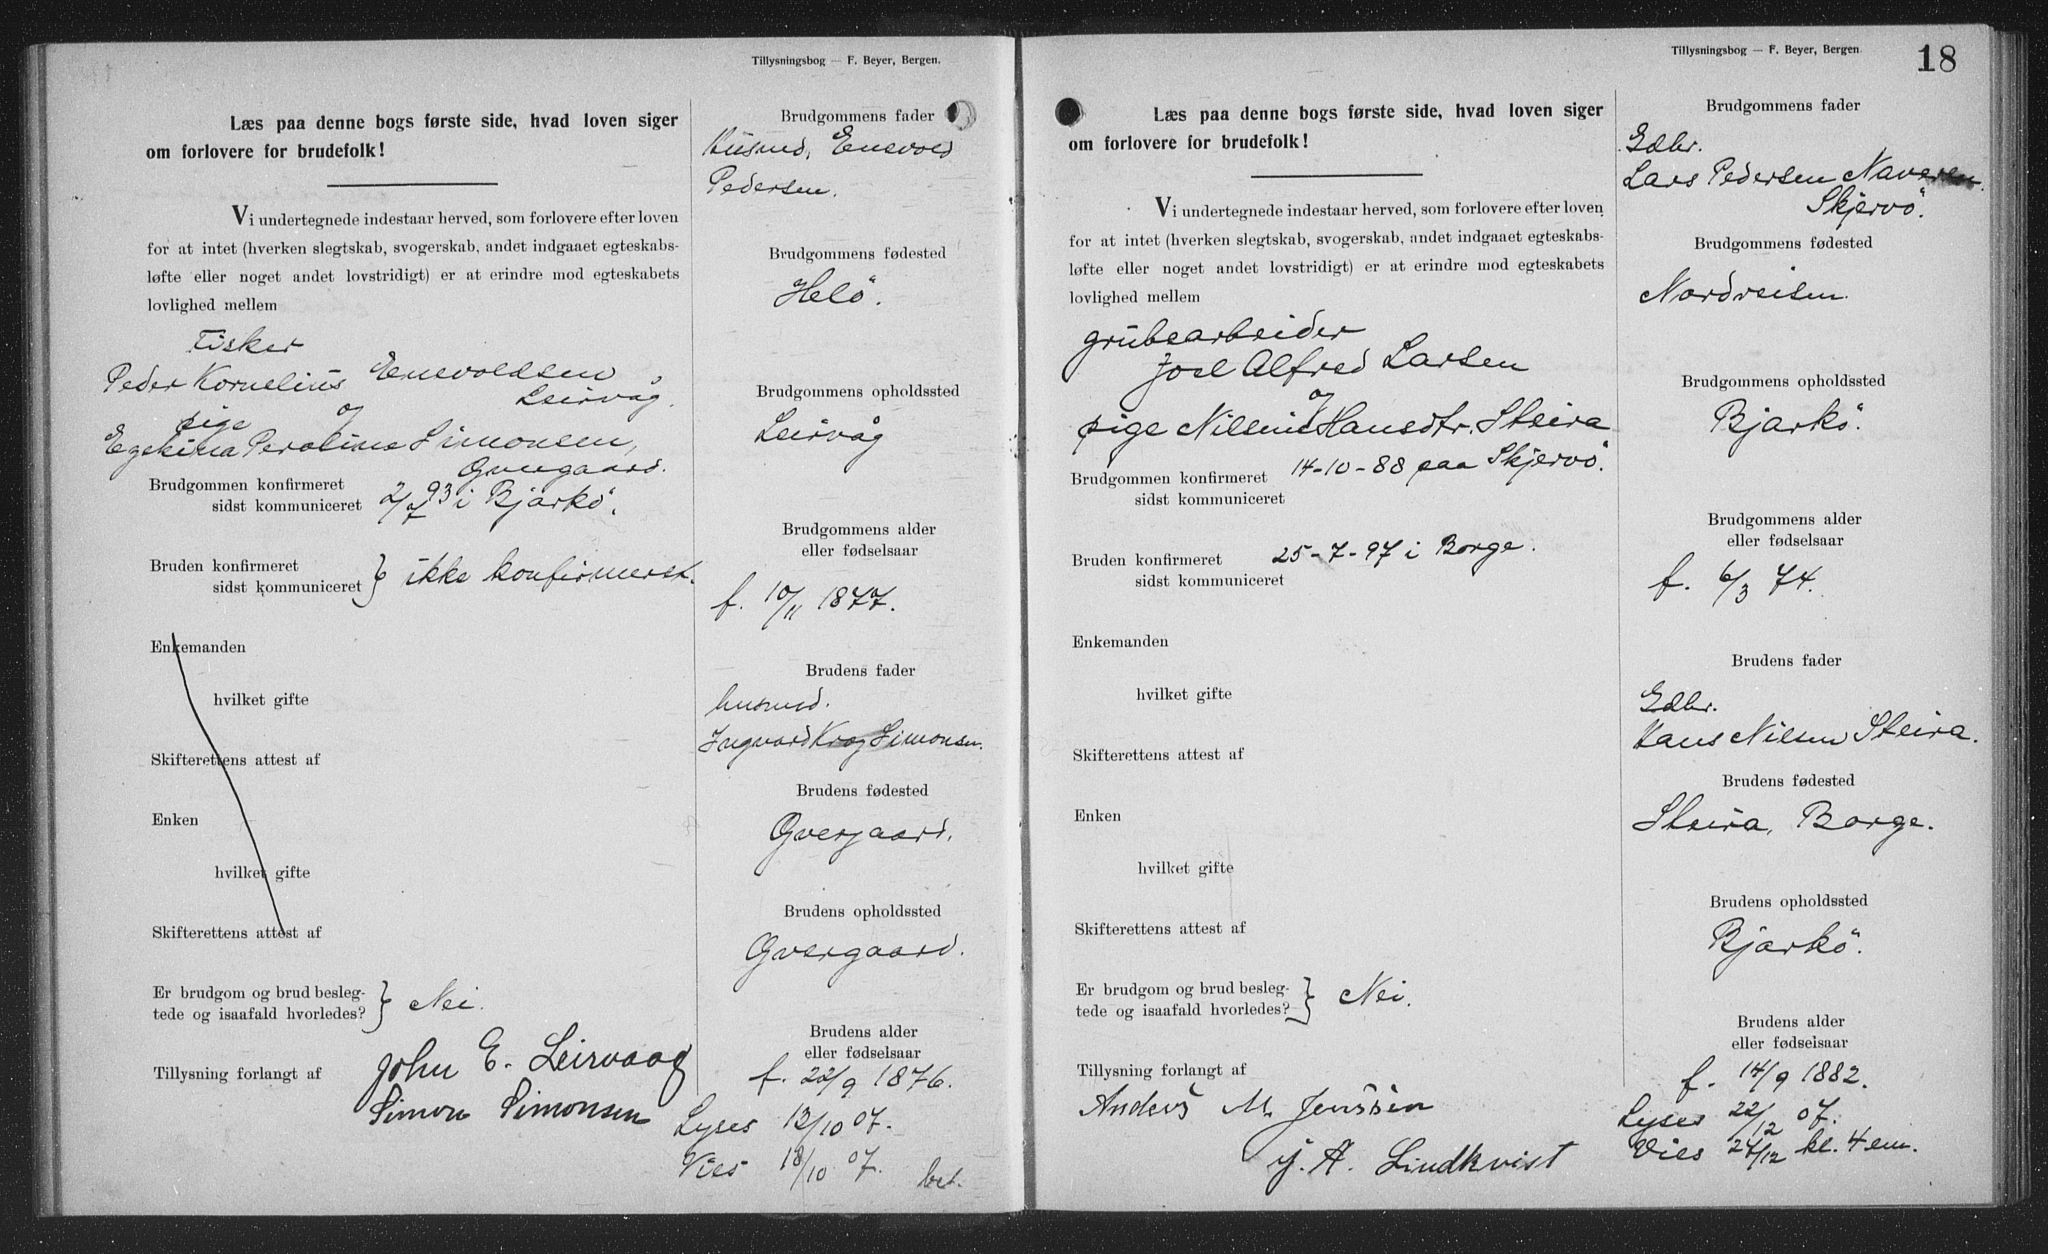 Tillysningsbog — F. Beyer, Bergen.
Læs paa denne bogs første side, hvad loven siger
om forlovere for brudefolk!
Vi undertegnede indestaar herved, som forlovere efter loven
for at intet (hverken slegtskab, svogerskab, andet indgaaet egteskabs-
løfte eller noget andet lovstridigt) er at erindre mod egteskabets
lovlighed mellem
Fisker
Peder Kornelius Enevoldsen
Leirvåg.
og
pige
Perolina Simonsen,
Brudgommen konfirmeret
sidst kommuniceret 2/7 93 i Bjarkö.
Bruden konfirmeret
sidst kommuniceret } ikke konfirmeret.
Enkemanden
hvilket gifte
Skifterettens attest af
Enken
hvilket gifte
Skifterettens attest af
Er brudgom og brud besleg-
tede og isaafald hvorledes? } Nei.
Tillysning forlangt af
John E. Leirvaag
Simon Simonsen
Brudgommens fader
Husmd, Enevold
Pedersen.
Brudgommens fødested
Helö.
Brudgommens opholdssted
Leirvåg
Brudgommens alder
eller fødselsaar
f. 10/11 1877.
Brudens fader
husmd.
Ingvard Krog Simonsen.
Brudens fødested
Qvergaard.
Brudens opholdssted
Qvergaard.
Brudens alder
eller fødselsaar
f. 22/9 1876.
Lyses 13/10 07.
Vies 18/10 07. bet.
Tillysningsbog — F. Beyer, Bergen.
18
Læs paa denne bogs første side, hvad loven siger
om forlovere for brudefolk!
Vi undertegnede indestaar herved, som forlovere efter loven
for at intet (hverken slegtskab, svogerskab, andet indgaaet egteskabs-
løfte eller noget andet lovstridigt) er at erindre mod egteskabets
lovlighed mellem
grubearbeider
Joel Alfred Larsen
og
pige Nilsine Hansdtr. Steira
Brudgommen konfirmeret 14-10-88 paa Skjervö.
sidst kommuniceret
Bruden konfirmeret 25-7-97 i Borge.
sidst kommuniceret
Enkemanden
hvilket gifte
Skifterettens attest af
Enken
hvilket gifte
Skifterettens attest af
Er brudgom og brud besleg-
tede og isaafald hvorledes? } Nei.
Tillysning forlangt af
Anders M. Jenssen
J. A. Lindkvist
Brudgommens fader
Gdbr.
Lars Pedersen Naveren.
Skjervö.
Brudgommens fødested
Nordreisen.
Brudgommens opholdssted
Bjarkö.
Brudgommens alder
eller fødselsaar
f. 6/3 74.
Brudens fader
Gdbr.
Hans Nilsen Steira.
Brudens fødested
Steira, Borge.
Brudens opholdssted
Bjarkö.
Brudens alder
eller fødselsaar
f. 14/9 1882.
Lyses 22/12 07.
Vies 24/12 kl. 4 em.